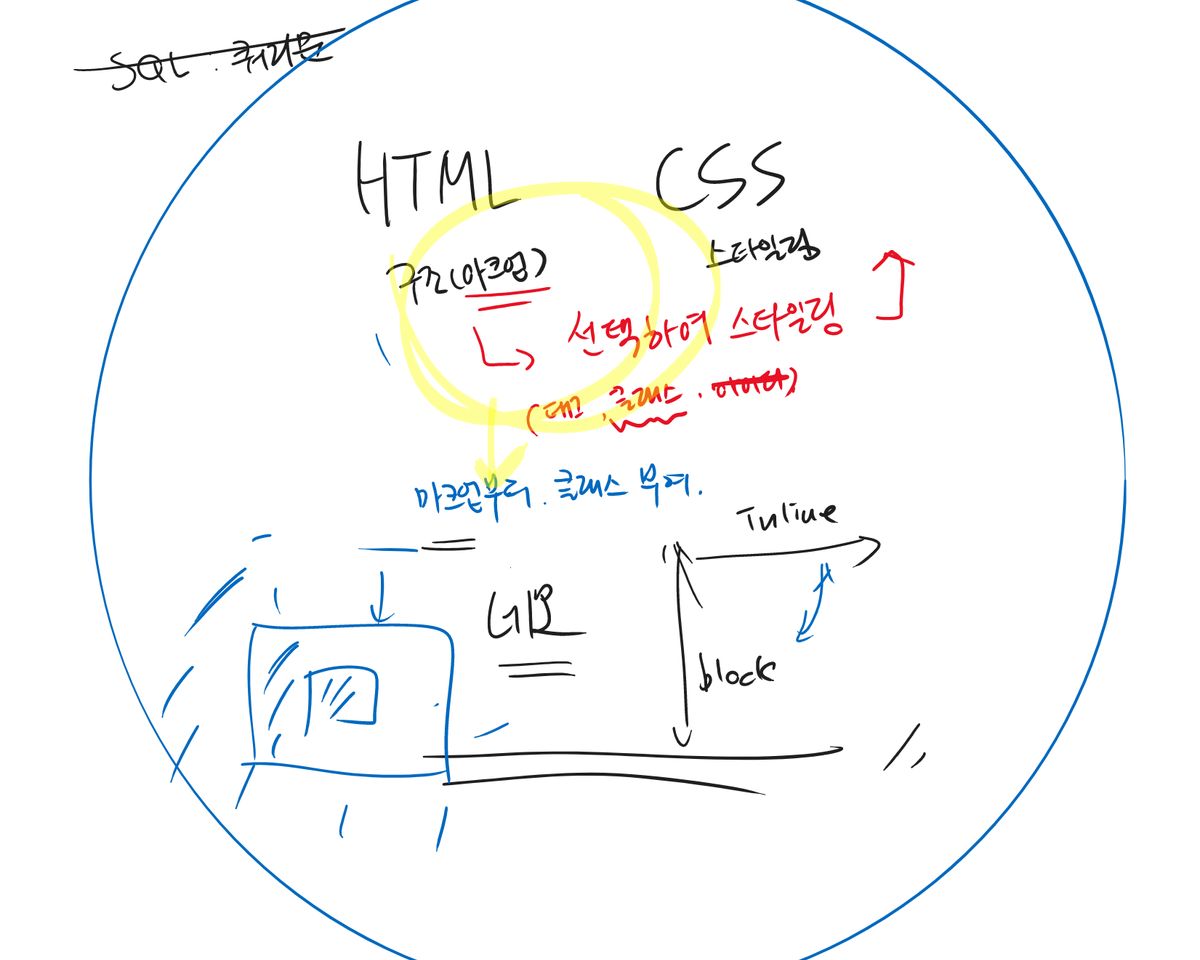 SQL . 쿼리문
HTML CSS
구조(마크업) 스타일링
선택하여 스타일링
(태그, 클래스, 아이디)
마크업부터. 클래스 부여.
Inline
block